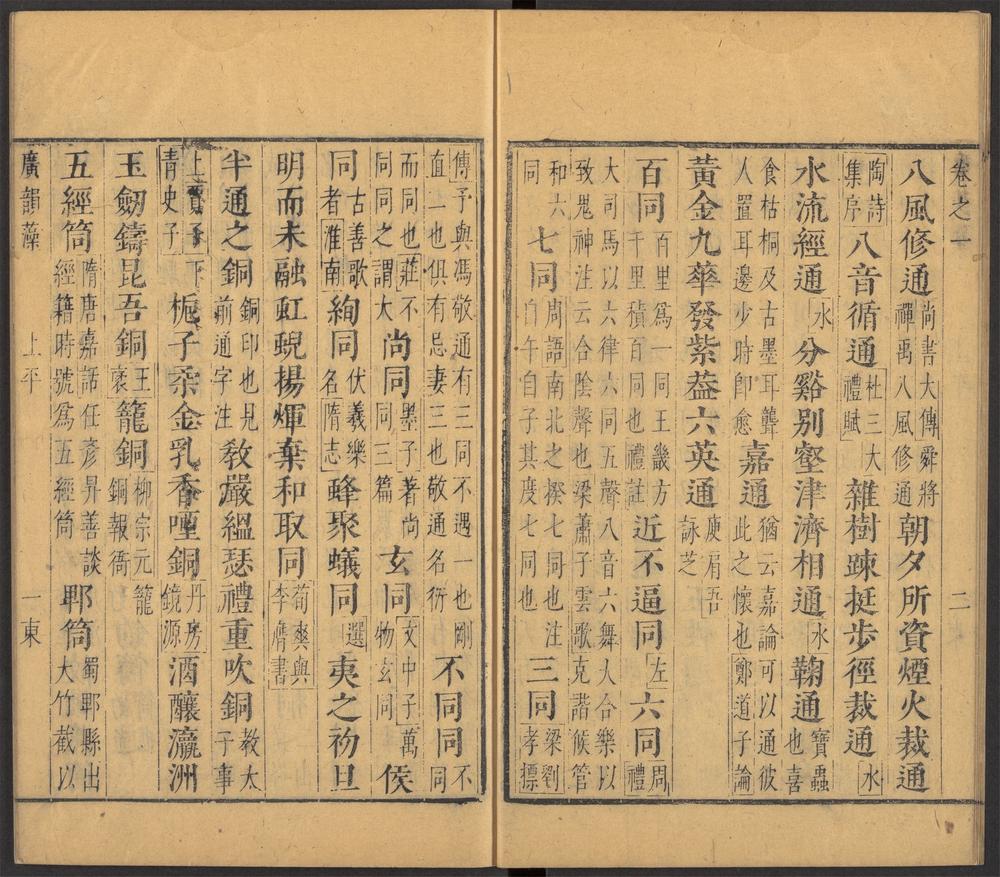 卷之一 二
八風修通尚書大傳舜將禪禹八風修通朝夕所資煙火裁通
陶詩集序八音循通杜三大禮賦雜樹踈挺步徑裁通水
水流經通水分谿別壑津濟相通水鞠通寶蟲也喜
食枯桐及古墨耳聾人置耳邊少時卽愈嘉通猶云嘉論可以通彼此之懷也鄭道子論
黃金九華發紫葢六英通庾肩吾詠芝
百同百里爲一同王畿方千里積百同也禮註近不逼同左六同周禮
大司馬以六律六同五聲八音六舞大合樂以致鬼神注云合陰聲也梁蕭子雲歌克諧候管
和六同七同周語南北之揆七同也注自午自子其度七同也三同梁劉孝摽
傳予與馮敬通有三同不遇一也剛直二也俱有忌妻三也敬通名衍不同同不同
而同也莊不同同之謂大尚同墨子著尚同三篇玄同文中子萬物玄同侯
同古善歌者淮南絢同伏羲樂名隋志蜂聚蟻同選夷之礿旦
明而未融虹蜺揚煇棄和取同荀爽與李膺書
半通之銅銅印也見前通字注敎嚴縕瑟禮重吹銅教太子事
上賈子下青史子梔子柔金乳香啞銅丹房鏡源酒釀瀛洲
玉劒鑄昆吾銅王褒籠銅柳宗元籠銅報衙
五經筒隋唐嘉話任彥昇善談經籍時號爲五經筒郫筒蜀郫縣出大竹截以
廣韻藻 上平 一東